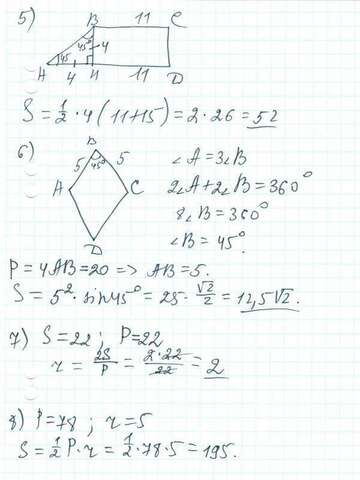 5)
B 11 C
45° 4
45
A 4 H 11 D
S = 1/2 · 4 (11+15) = 2 · 26 = 52
6)
B
5 45° 5
A C
D
∠A = 3∠B
2∠A + 2∠B = 360°
8∠B = 360°
∠B = 45°
P = 4AB = 20 => AB = 5.
S = 5² · sin45° = 25 · √2/2 = 12,5√2.
7) S = 22 ; P = 22
r = 2S/P = 2·22/22 = 2
8) P = 78 ; r = 5
S = 1/2 P · r = 1/2 · 78 · 5 = 195.